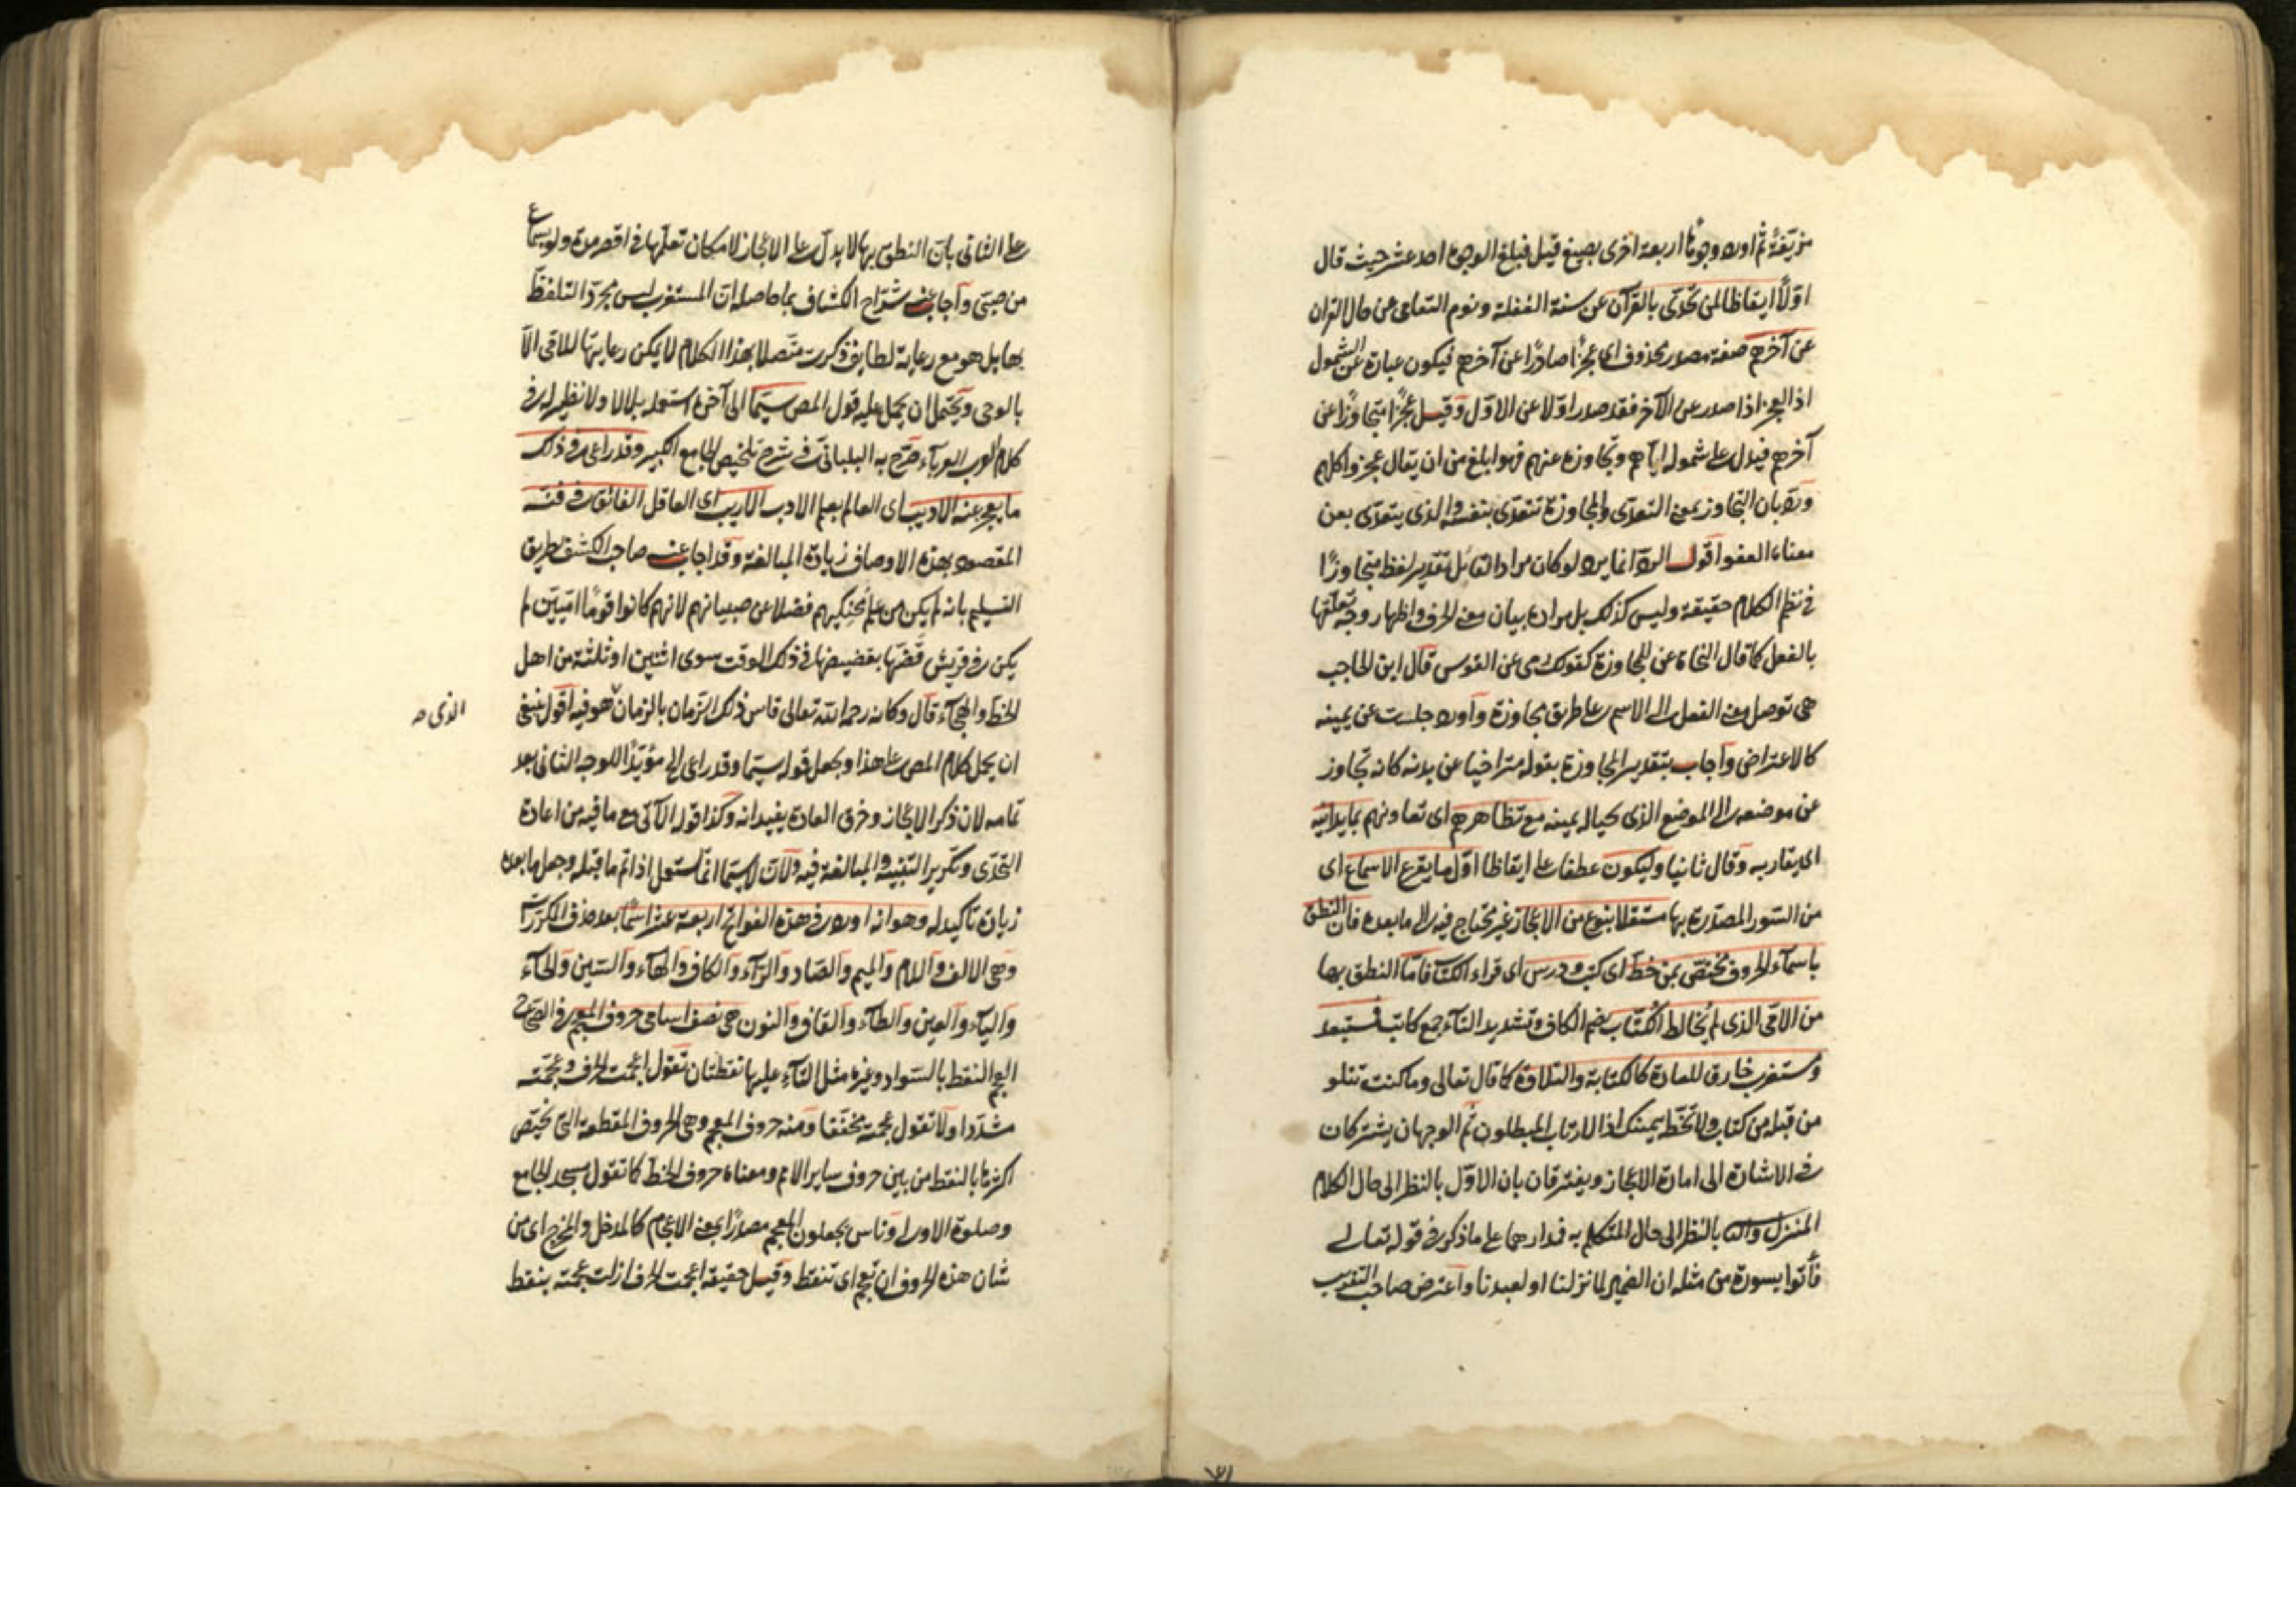 مزيّفة ثم اورد وجوها اربعة اخرى بصيغ قيل فبلغ الوجوه احد عشر حيث قال
اوّلا ايقاظا لمن تحدّى بالقرآن عن سنة الغفلة ونوم التعامى عن حال القران
عن آخرهم صفة مصدر محذوف اى عجزا صادرا عن آخرهم فيكون عبارة عن الشمول
اذ العجز اذا صدر عن الآخر فقد صدر اولا عن الاوّل وقيل عجزا متجاوزا عن
آخرهم فيدل على شموله اياهم وتجاوزه عنهم فهو ابلغ من ان يقال عجزوا كلهم
وردّ بان التجاوز بمعنى التعدّى والمجاوزة تتعدّى بنفسه والذى يتعدّى بعن
معناه العفو اقول الردّ انما يرد لو كان مراد القائل تقدير لفظ متجاوزا
فى نظم الكلام حقيقة وليس كذلك بل مراده بيان معنى الحرف واظهار وجه تعلقها
بالفعل كما قال النحاة عن للمجاوزة كقولك رمى عن القوس قال ابن الحاجب
هى توصل معنى الفعل الى الاسم على طريق مجاوزة وآورد جلست عن يمينه
كالاعتراض وآجاب بتقدير المجاوزة بقوله متراخيا عن بدنه كانه تجاوز
عن موضعه الى الموضع الذى بحيال يمينه مع تظاهرهم اى تعاونهم بما يدانيه
اى يقاربه وقال ثانيا وليكون عطف على ايقاظا اوّل ما يقرع الاسماع اى
من السّور المصدّرة بها مستقلا بنوع من الاعجاز غير محتاج فيه الى ما بعده فان النطق
باسمآء الحروف مختصّ بمن خطّ اى كتب ودرس اى قراء الكتب فامّا النطق بها
من الامّى الذى لم يُخالط الكُتّاب بضم الكاف وتشديد التآء جمع كاتب فمستبعد
ومستغرب خارق للعادة كالكتابة والتلاوة كما قال تعالى وما كنت تتلو
من قبله من كتاب ولا تخطّه بيمينك اذا لارتاب المبطلون ثم الوجهان يشتركان
فى الاشارة الى امارة الاعجاز ويفترقان بان الاوّل بالنظر الى حال الكلام
المنزل والث بالنظر الى حال المتكلم به فدارهما على ما ذكر فى قوله تعالى
فأتوا بسورة من مثله ان الضمير لما نزلنا او لعبدنا وآعترض صاحب التقريب
على الثانى بان النطق بها لا يدلّ على الاعجاز لامكان تعلّمها فى اقصر مدة ولو بسماع
من صبىّ وآجاب عنه شرّاح الكشاف بما حاصله انّ المستغرب ليس مجرّد التلفظ
بها بل هو مع رعاية لطايف ذكرت متّصلا بهذا الكلام لا يمكن رعايتها للامّى الّا
بالوحى ويحتمل ان يحمل عليه قول المص سيّما الى آخره استعمله بلا لا ولا نظير له فى
كلام العرب العرباء صرّح به البلبانىّ فى شرح تلخيص الجامع الكبير وقد راعى فى ذلك
ما يعجز عنه الاديب اى العالم بعلم الادب الاريب اى العاقل الفائق فى فنّه
المقصود بهذه الاوصاف زيادة المبالغة وقد اجاب عنه صاحب الكشف بطريق
التسليم بانه لم يكن من علم محنّكيهم فضلا عن صبيانهم لانهم كانوا قوما اميّين لم
يكن فى قريش قضّها بقضيضها فى ذلك الوقت سوى اثنين او ثلثة من اهل
الخطّ والهجآء قال وكانه رحمه الله تعالى قاس ذلك الزمان بالزمان هو فيه اقول ينبغى
الذى صح
ان يحمل كلام المص على هذا ويجعل قوله سيّما وقد راعى الخ مؤيّدا للوجه الثانى بعد
تمامه لان ذكر الاعجاز وخرق العادة يفيدانه وكذا قوله الآتى مع ما فيه من اعادة
التحدّى وتكرير التنبيه والمبالغة فيه ولانّ لاسيّما انما يستعمل اذا تمّ ما قبله وجعل ما بعده
زيادة تأكيد له وهو انه اورد فى هذه الفواتح اربعة عشر اسمًا بعد حذف المكرّرات
وهى الالف واللام والميم والصّاد والرّآء والكاف والهآء والسّين والحآء
واليآء والعين والطآء والقاف والنون هى نصف اسامى حروف المعجم فى الصّحاح
العجم النقط بالسّواد وغيره مثل التآء عليها نقطتان تقول اعجمت الحرف وعجّمته
مشدّدا ولا تقول عجمته مخففا ومنه حروف المعجم وهى الحروف المقطعة التى يختصّ
اكثرها بالنقط من بين حروف ساير الامم ومعناه حروف الخطّ كما تقول مسجد الجامع
وصلوة الاولى وناس يجعلون المعجم مصدرًا بمعنى الاعجام كالمدخل والمخرج اى من
شان هذه الحروف ان تعجم اى تنقط وقيل حقيقة اعجمت الحرف ازلت عجمته بنقط